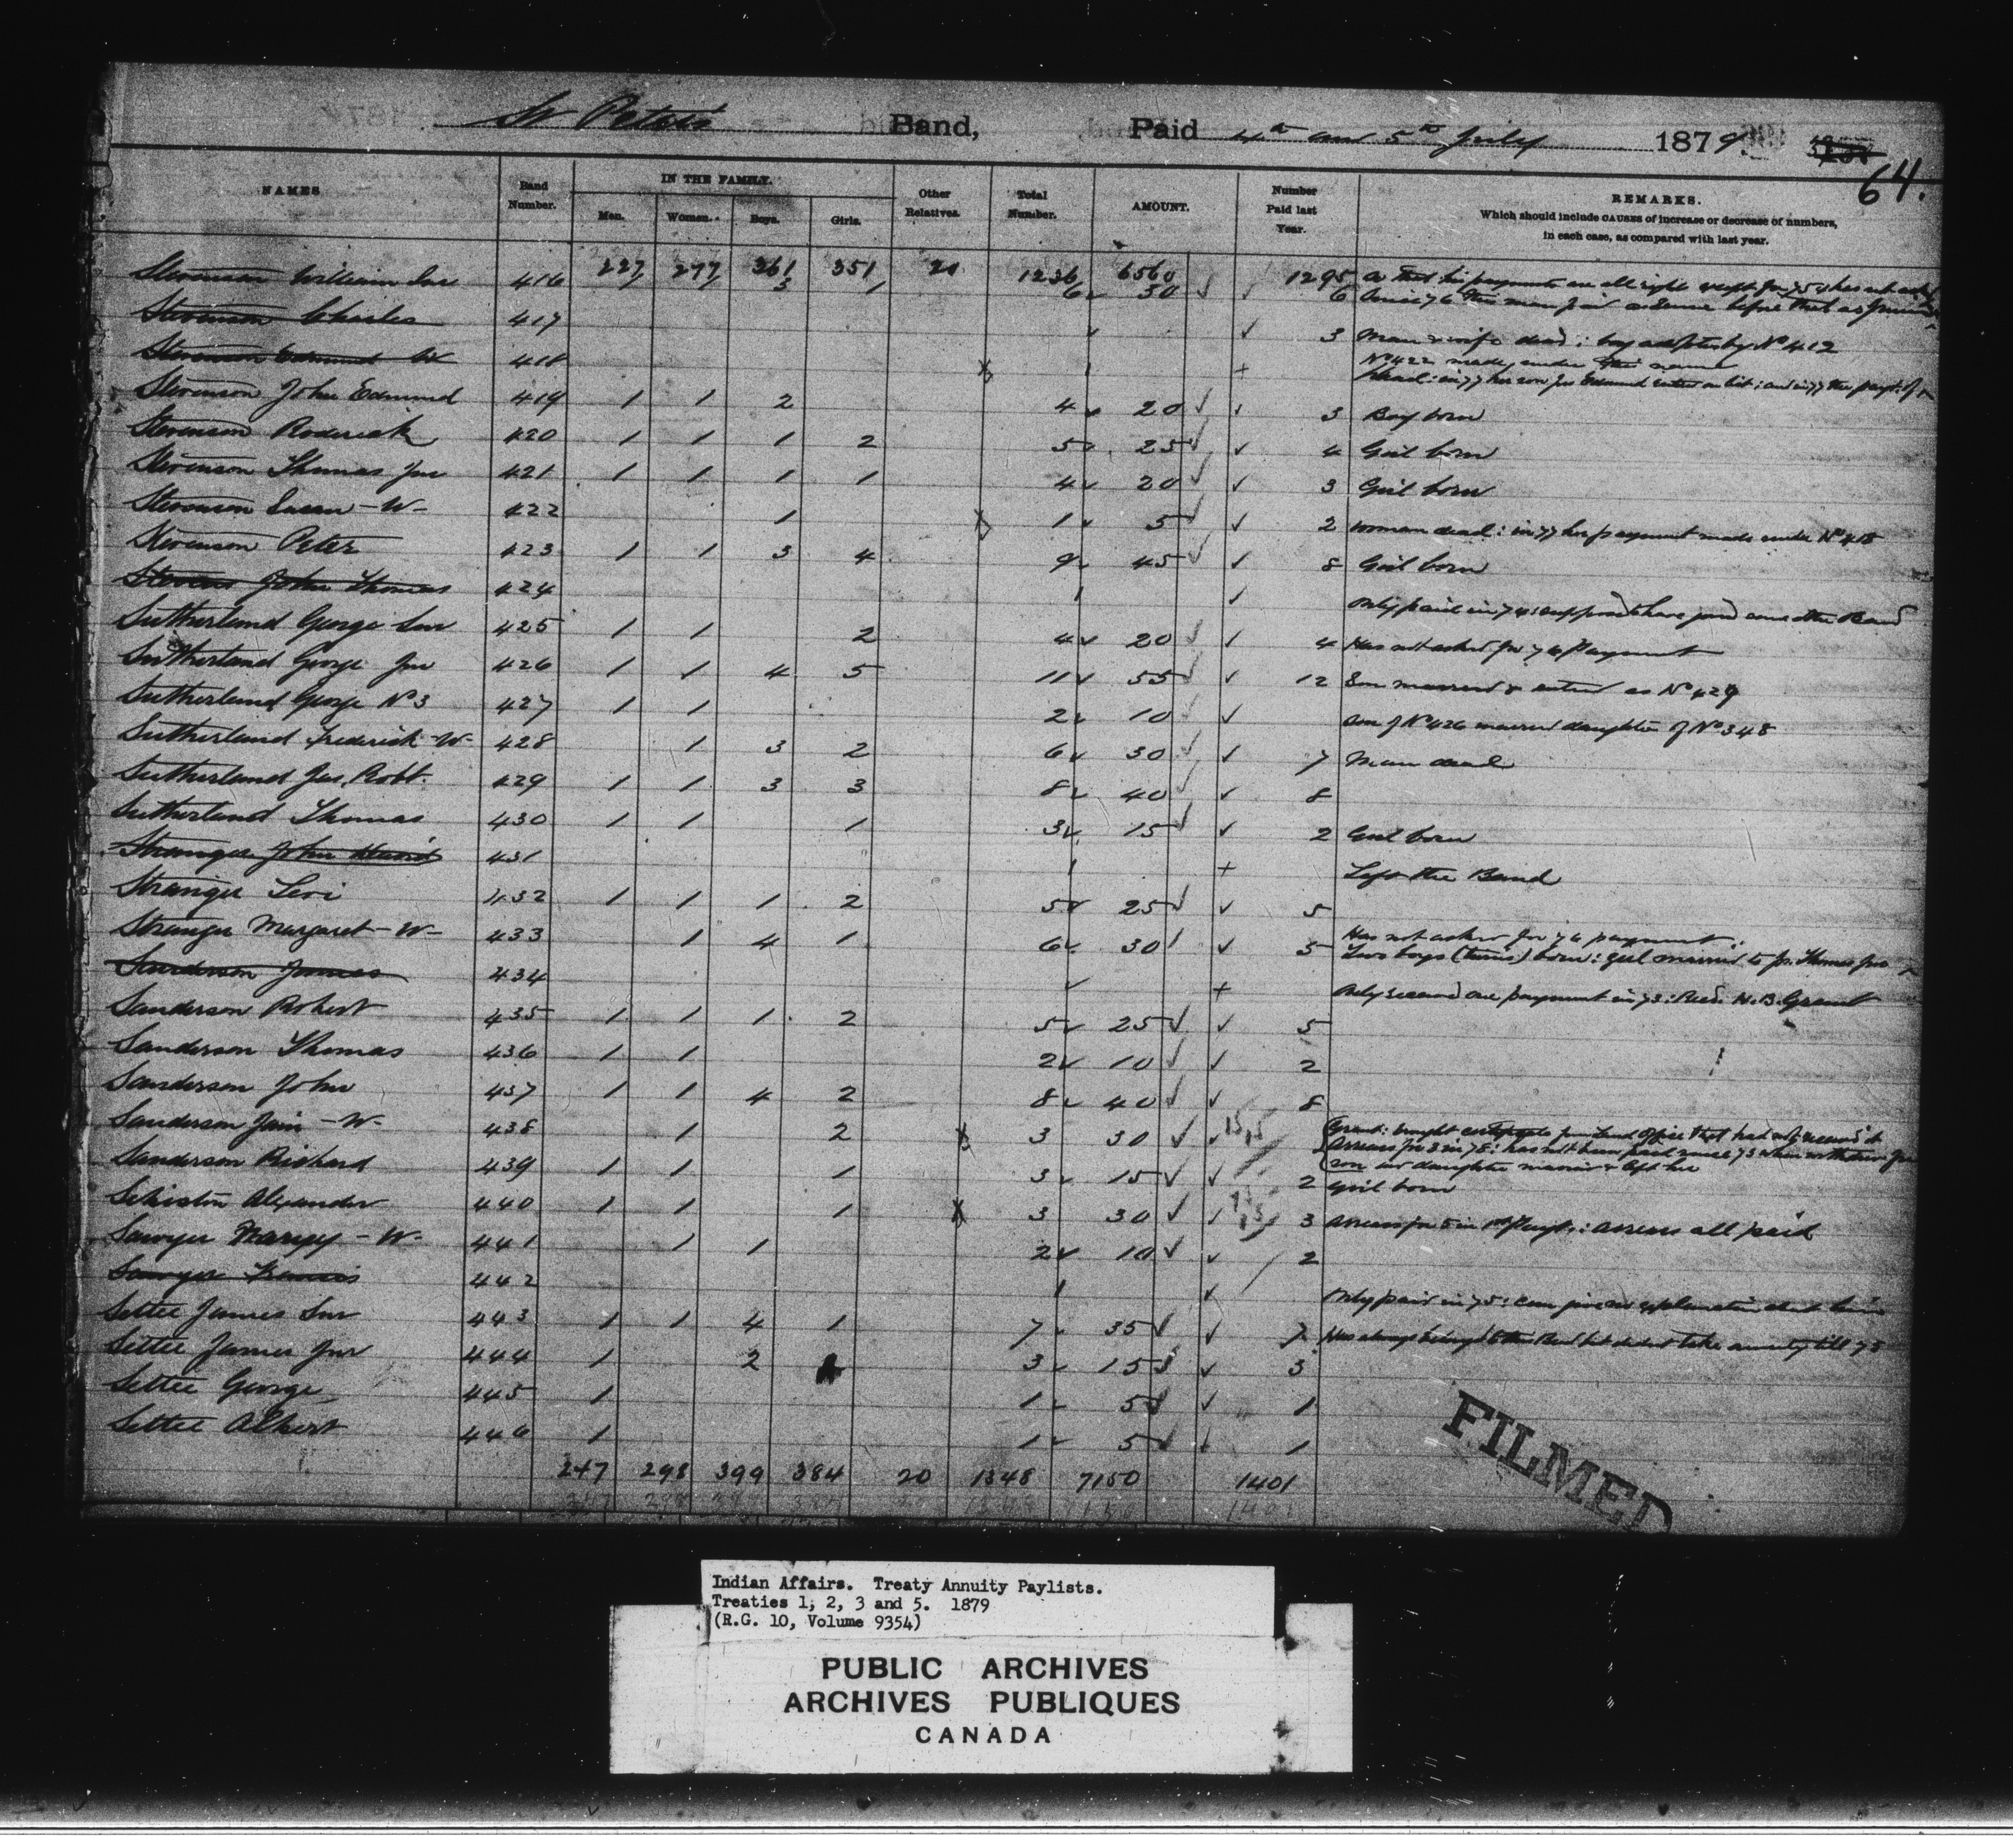 St Peter's Band, Paid 4th and 5th July 1879
64.
NAMES Band Number. IN THE FAMILY. Men. Women. Boys. Girls. Other Relatives. Total Number. AMOUNT. Number Paid last Year. REMARKS.
Which should include CAUSES of increase or decrease of numbers,
in each case, as compared with last year.
227 277 361 351 20 1236 6560 1295
Stevenson William Snr 416 3 6 30 6
Stevenson Charles 417 3 Man & wife dead: boy adopted by No 412
Stevenson Edmund W 418 No 422 made under this name
Stevenson John Edmund 419 1 1 2 4 20 3 Boy born
Stevenson Roderick 420 1 1 1 2 5 25 4 Girl born
Stevenson Thomas Jnr 421 1 1 1 1 4 20 3 Girl born
Stevenson Susan - W - 422 1 1 5 2 Woman dead: in 77 her payment made under No 418
Stevenson Peter 423 1 1 3 4 9 45 8 Girl born
Stevens John Thomas 424 Only paid in 74: supposed to have joined some other Band
Sutherland George Snr 425 1 1 2 4 20 4 Has not asked for 76 Payment
Sutherland George Jnr 426 1 1 4 5 11 55 12 Son married & entered as No 429
Sutherland George No 3 427 1 1 2 10 Son of No 426 married daughter of No 348
Sutherland Frederick - W - 428 1 3 2 6 30 7 Man dead
Sutherland Jas. Robt. 429 1 1 3 3 8 40 8
Sutherland Thomas 430 1 1 1 3 15 2 Girl born
Stranger John 431 Left the Band
Stranger Levi 432 1 1 1 2 5 25 5
Stranger Margaret - W - 433 1 4 1 6 30 5 Has not asked for 76 payment.
Two boys (twins) born: girl married to
Sanderson James 434 Only received one payment in 73: Recd. H.B. Grant
Sanderson Robert 435 1 1 1 2 5 25 5
Sanderson Thomas 436 1 1 2 10 2
Sanderson John 437 1 1 4 2 8 40 8
Sanderson Jane - W - 438 1 2 3 30 15 15
Arrears for 3 in 78: has not been paid since 73
son daughter married & left her
Sanderson Richard 439 1 1 1 3 15 2 Girl born
Alexander 440 1 1 1 3 30 3 arrears all paid
Sawyer - W - 441 1 1 2 10 2
Sawyer Francis 442 Only paid in 75: can give no explanation about him
Settee James Snr 443 1 1 4 1 7 35 7 Has always belonged to this Band but did not take annuity till 75
Settee James Jnr 444 1 2 3 15 3
Settee George 445 1 1 5 1
Settee Albert 446 1 1 5 1
247 298 399 384 20 1348 7150 1401
FILMED
Indian Affairs. Treaty Annuity Paylists.
Treaties 1, 2, 3 and 5. 1879
(R.G. 10, Volume 9354)
PUBLIC ARCHIVES
ARCHIVES PUBLIQUES
CANADA